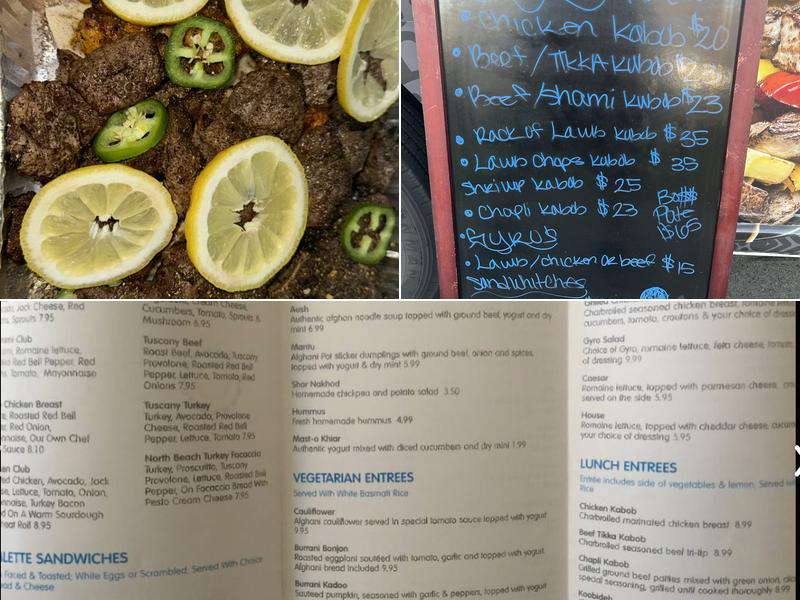 Chicken kabob $20
Beef/TIKKA kubob $23
Beef/shami kubob $23
Rack of Lamb kubob $35
Lamb Chops kabob $35
shrimp kabob $25
Chapli kabob $23
Bo$$
Plate
$65
Gyro's
Lamb/chicken or beef $15
Sandwhitches
Jack Cheese, Red
Sprouts 7.95
Club
Romaine lettuce,
Red Bell Pepper, Red
Tomato, Mayonnaise
Chicken Breast
Roasted Red Bell
Red Onion,
Our Own Chef
Sauce 8.10
Club
Chicken, Avocado, Jack
Lettuce, Tomato, Onion,
Turkey Bacon
On A Warm Sourdough
Roll 8.95
SANDWICHES
Faced & Toasted; White Eggs or Scrambled; Served With Choice
& Cheese
Cream Cheese,
Cucumbers, Tomato, Sprouts &
Mushroom 6.95
Tuscany Beef
Roast Beef, Avocado, Tuscany
Provolone, Roasted Red Bell
Pepper, Lettuce, Tomato, Red
Onions 7.95
Tuscany Turkey
Turkey, Avocado, Provolone
Cheese, Roasted Red Bell
Pepper, Lettuce, Tomato 7.95
North Beach Turkey Focaccia
Turkey, Prosciutto, Tuscany
Provolone, Lettuce, Roasted Bell
Pepper, On Focaccia Bread With
Pesto Cream Cheese 7.95
Aush
Authentic afghan noodle soup topped with ground beef, yogurt and dry
mint 6.99
Mantu
Afghani Pot sticker dumplings with ground beef, onion and spices,
topped with yogurt & dry mint 5.99
Shor Nakhod
Homemade chickpea and potato salad 3.50
Hummus
Fresh homemade hummus 4.99
Mast-o Khiar
Authentic yogurt mixed with diced cucumbers and dry mint 1.99
VEGETARIAN ENTREES
Served With White Basmati Rice
Cauliflower
Afghani cauliflower served in special tomato sauce topped with yogurt
9.95
Burrani Bonjon
Roasted eggplant sautéed with tomato, garlic and topped with yogurt.
Afghani bread included 9.95
Burrani Kadoo
Sauteed pumpkin, seasoned with garlic & peppers, topped with yogurt
Charbroiled seasoned chicken breast, romaine
cucumbers, tomato, croutons & your choice of
Gyro Salad
Choice of Gyro, romaine lettuce, feta cheese, tomato,
of dressing 9.99
Caesar
Romaine lettuce, topped with parmesan cheese,
served on the side 5.95
House
Romaine lettuce, topped with cheddar cheese,
your choice of dressing 5.95
LUNCH ENTREES
Entrée includes side of vegetables & lemon. Served
Rice
Chicken Kabob
Charbroiled marinated chicken breast 8.99
Beef Tikka Kabob
Charbroiled seasoned beef tri-tip 8.99
Chapli Kabob
Grilled ground beef patties mixed with green onion,
special seasoning, grilled until cooked thoroughly 8.99
Koobideh